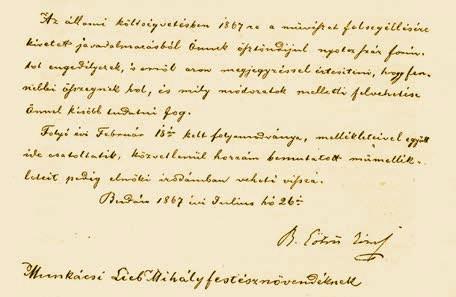 Az állami költségvetésben 1867-re a művészet felsegéllésére
kivetett javadalmazásból Önnek ösztöndíjul nyolczszáz forin-
tot engedélyezek, s erről azon megjegyzéssel értesítem, hogy fen-
nebbi összegnek hol, és mily módozatok melletti felvehetése
Önnel később tudatni fog.
Folyó évi Február 18án kelt folyamodványa, mellékleteivel együtt
ide csatoltatik, közvetlenül hozzám bemutatott műmellék-
leteit pedig elnöki irodámban veheti vissza.
Budán 1867 évi Julius hó 26án
B. Eötvös József
Munkácsi Lieb Mihály festésznövendéknek